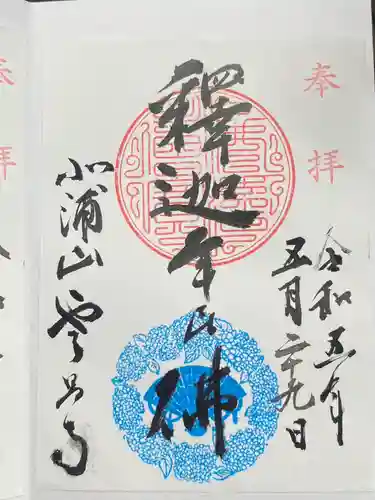 奉拝
令和五年
五月二十九日
釋迦牟尼佛
北浦山雲昌寺